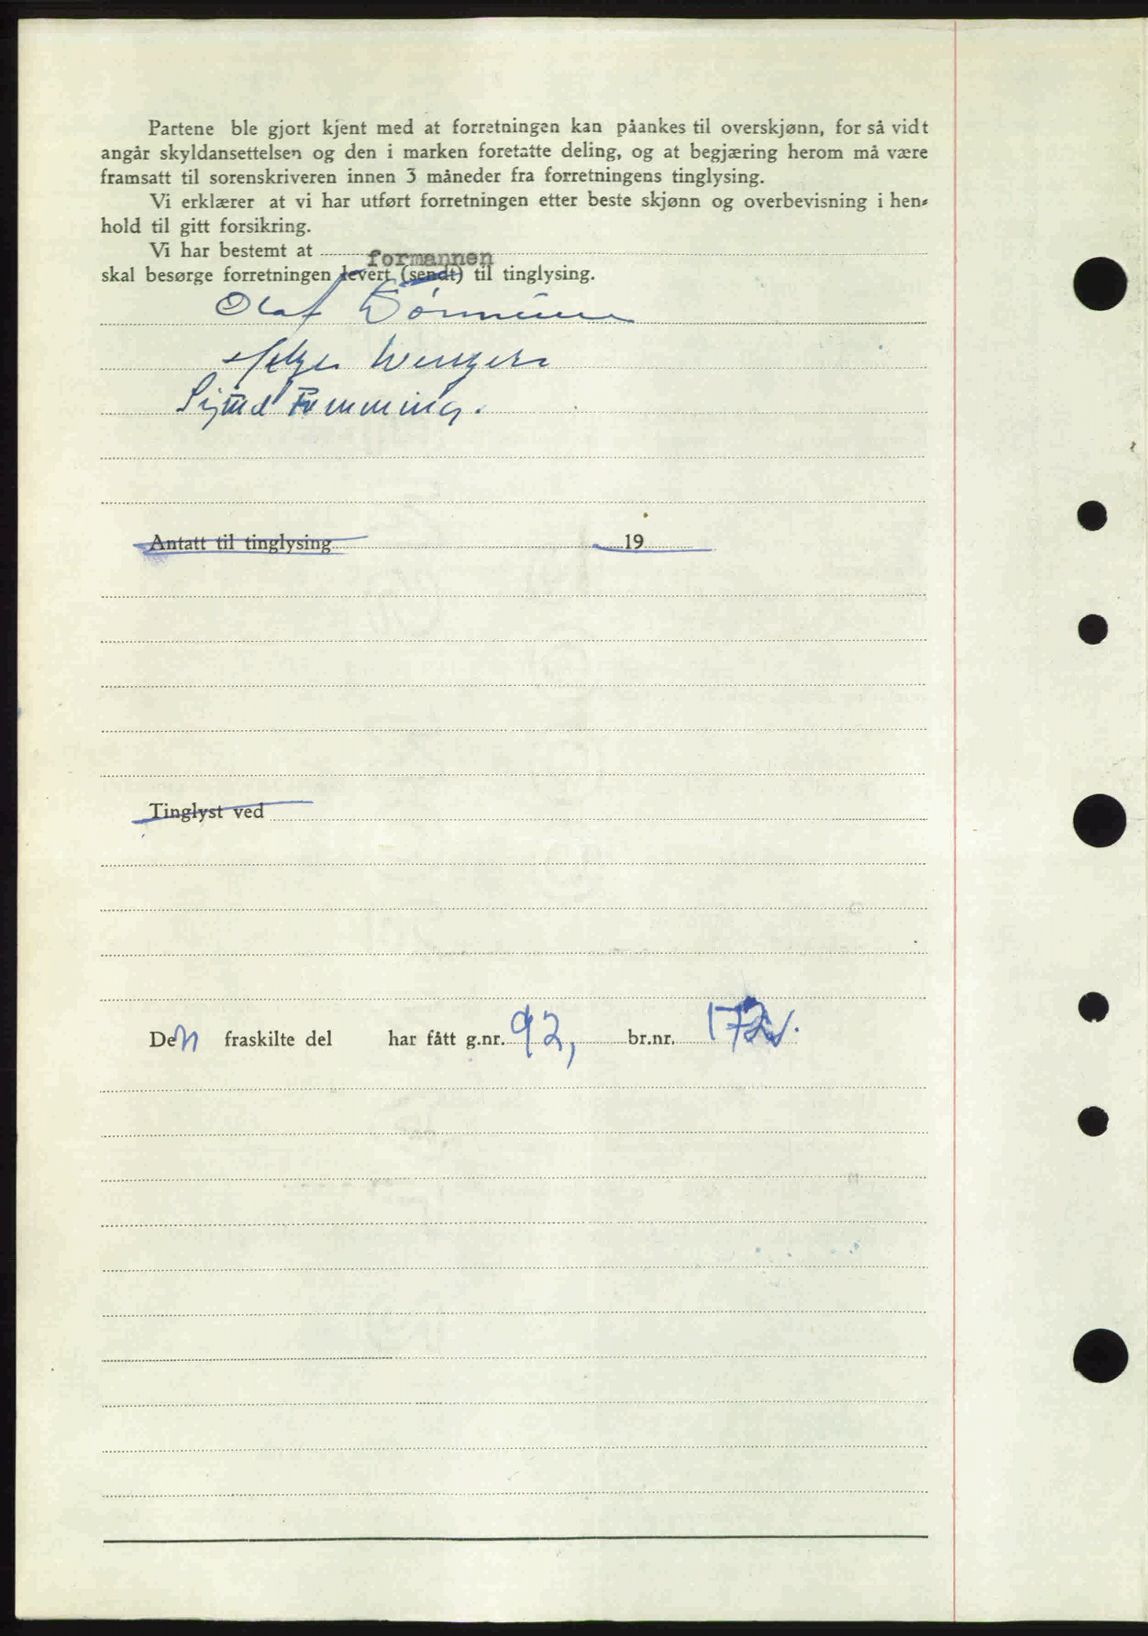 Partene ble gjort kjent med at forretningen kan påankes til overskjønn, for så vidt
angår skyldansettelsen og den i marken foretatte deling, og at begjæring herom må være
framsatt til sorenskriveren innen 3 måneder fra forretningens tinglysing.
Vi erklærer at vi har utført forretningen etter beste skjønn og overbevisning i hen-
hold til gitt forsikring.
Vi har bestemt at formannen
skal besørge forretningen levert (sendt) til tinglysing.
Olaf
Helge
Sigurd
Antatt til tinglysing 19
Tinglyst ved
Den fraskilte del har fått g.nr. 92, br.nr. 172.